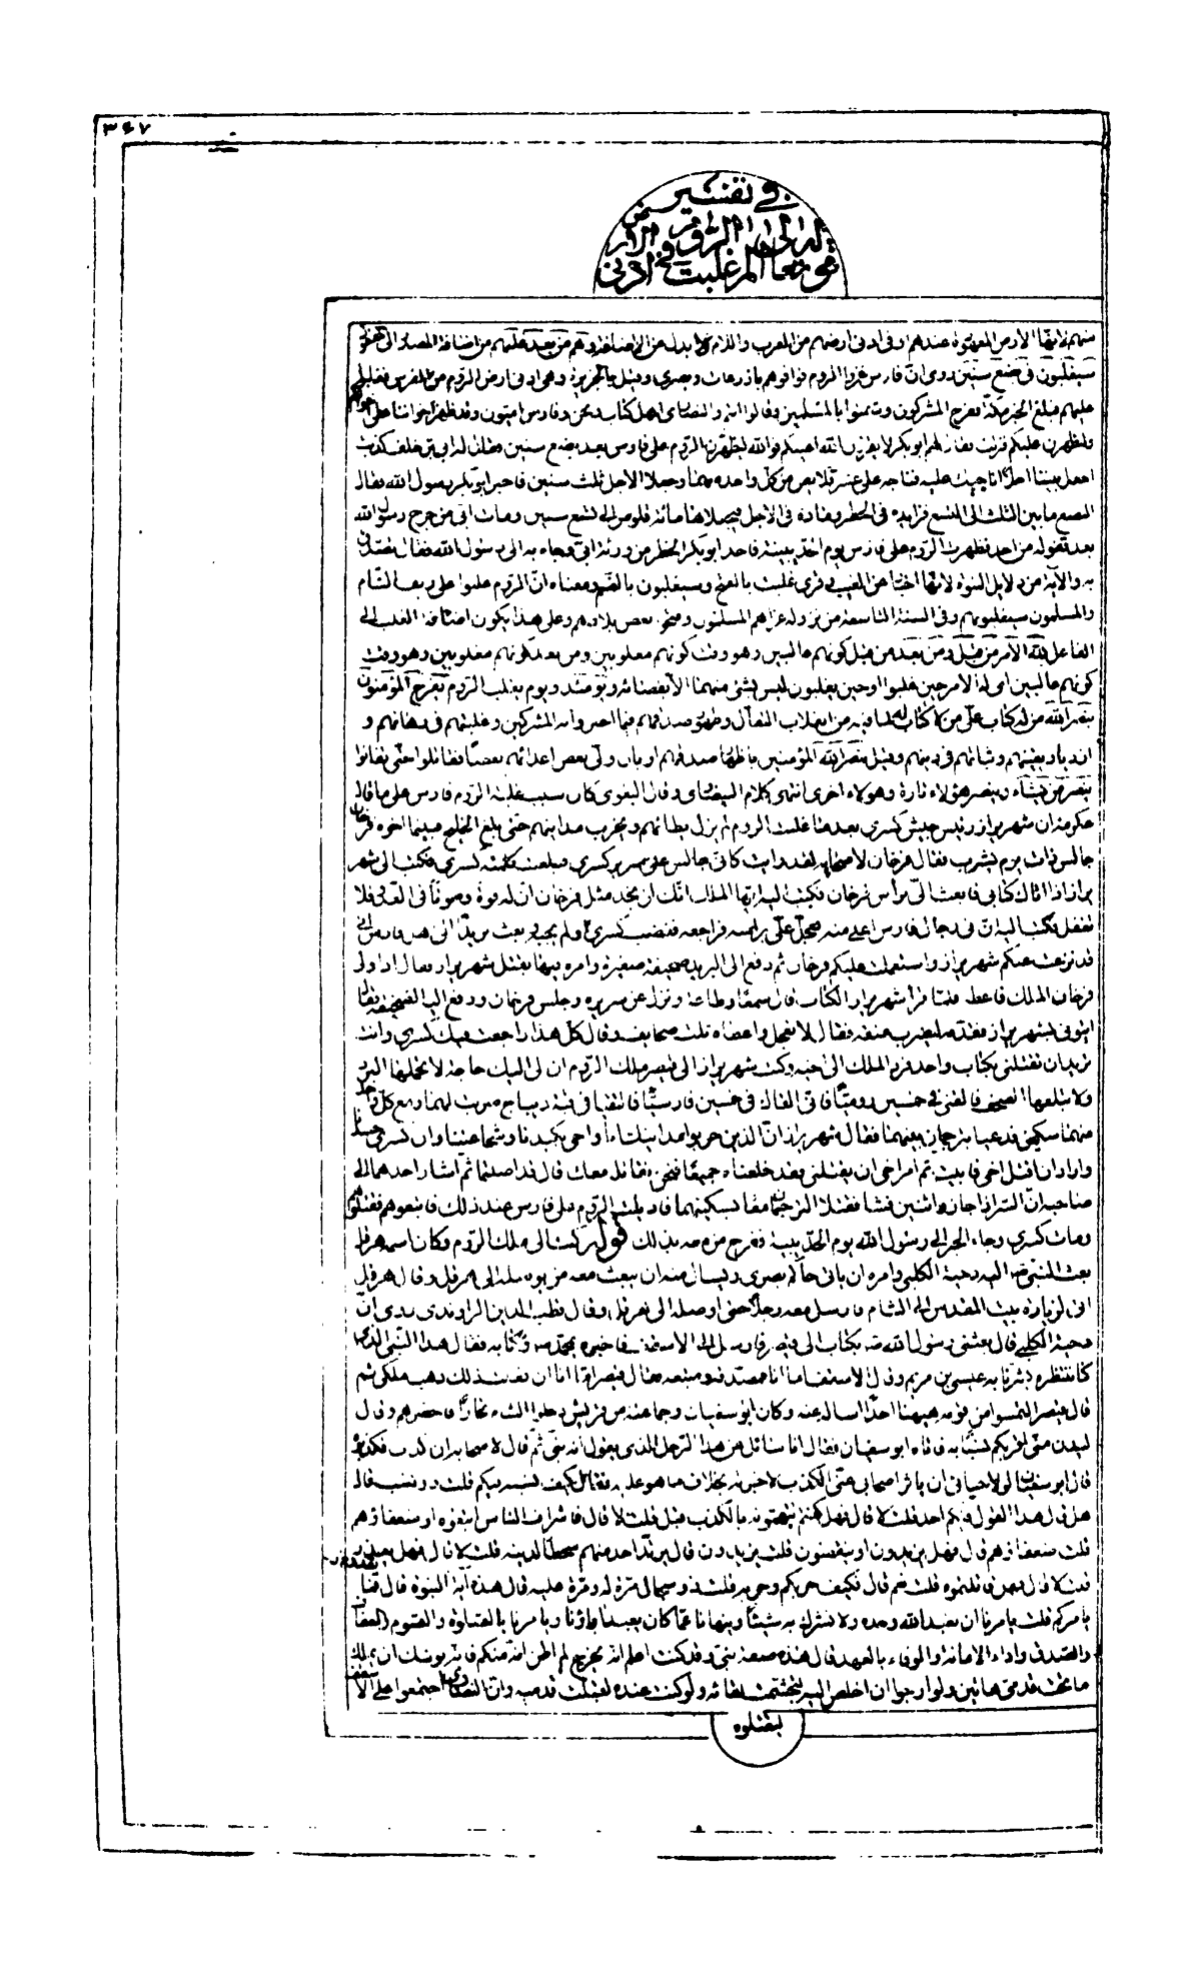 ٣٤٧
في تفسير
قوله تعالى الم غلبت الروم في ادنى الارض
منهم لانها الارض المعهودة عندهم او في ادنى ارضهم من العرب واللام بدل من الاضافة وهم من بعد غلبهم من اضافة المصدر الى المفعول
سيغلبون في بضع سنين روى ان فارس غزوا الروم فوافوهم باذرعات وبصرى وقيل بالجزيرة وهى ادنى ارض الروم من الفرس فغلبوا
عليهم وبلغ الخبر مكة ففرح المشركون وشمتوا بالمسلمين وقالوا انتم والنصارى اهل كتاب ونحن وفارس اميون وقد ظهر اخواننا على اخوانكم
ولنظهرن عليكم فنزلت فقال لهم ابو بكر لا يقرن الله اعينكم فوالله ليظهرن الروم على فارس بعد بضع سنين فقال له ابي بن خلف كذبت
اجعل بيننا اجلا اناحبك عليه فناحبه على عشر قلايص من كل واحد منهما وجعلا الاجل ثلث سنين فاخبر ابو بكر رسول الله فقال
البضع ما بين الثلث الى التسع فزايده في الخطر وماده في الاجل فجعلاها مائة قلوص الى تسع سنين ومات ابي من جرح رسول الله
بعد قفوله من احد فظهرت الروم على فارس يوم الحديبية فاخذ ابو بكر الخطر من ورثة ابي وجاء به الى رسول الله فقال تصدق
به والاية من دلايل النبوة لانها اخبار عن الغيب وقرى غلبت بالفتح وسيغلبون بالضم ومعناه ان الروم غلبوا على ريف الشام
والمسلمون سيغلبونهم وفي السنة التاسعة من نزوله غزاهم المسلمون وفتحوا بعض بلادهم وعلى هذا يكون اضافة الغلب الى
الفاعل لله الامر من قبل ومن بعد من قبل كونهم غالبين وهو وقت كونهم مغلوبين ومن بعد كونهم مغلوبين وهو وقت
كونهم غالبين اى له الامر حين غلبوا وحين يغلبون ليس شئ منهما الا بقضائه ويومئذ ويوم يغلب الروم يفرح المؤمنون
بنصر الله من له كتاب على من لا كتاب له لما فيه من انقلاب التفأل وظهور صدقهم فيما اخبروا به المشركين وغلبتهم في رهانهم و
ازدياد يقينهم وثباتهم في دينهم وقيل بنصر الله المؤمنين باظهار صدقهم او بان ولى بعض اعدائهم بعضا فقاتلوا حتى تفانوا
ينصر من يشاء وينصر هؤلاء تارة وهولاء اخرى انتهى كلام البيضاوى وقال البغوى كان سبب غلبة الروم فارس على ما قال
عكرمة ان شهريراز رئيس جيش كسرى بعد ما غلبت الروم لم يزل يطأهم ويخرب مداينهم حتى بلغ الخليج فبينما اخوه فرخان
جالس ذات يوم يشرب فقال فرخان لاصحابه لقد رايت كانى جالس على سرير كسرى فبلغت كلمته كسرى فكتب الى شهر
يراز اذا اتاك كتابى فابعث الى براس فرخان فكتب اليه ايها الملك انك لن تجد مثل فرخان ان له قوة وصوتا في العدو فلا
تفعل فكتب اليه ان في رجال فارس اعلى منه فعجل على براسه فراجعه فغضب كسرى ولم يجبه وبعث بريدا الى اهل فارس انى
قد نزعت عنكم شهريراز واستعملت عليكم فرخان ثم دفع الى البريد صحيفة صغيرة وامره فيها بقتل شهريراز وقال اذا ولى
فرخان الملك فاعطه فلما قرا شهريراز الكتاب قال سمعا وطاعة ونزل عن سريره وجلس فرخان ودفع اليه الصحيفة فقال
ايتونى بشهريراز فقدمه ليضرب عنقه فقال لا تعجل واعطاه ثلث صحايف وقال كل هذا راجعت فيك كسرى وانت
تريد ان تقتلنى بكتاب واحد فرد الملك الى اخيه وكتب شهريراز الى قيصر ملك الروم ان لى اليك حاجة لا تحملها البرد
ولا تبلغها الصحف فالقنى في خمسين روميا فانى القاك في خمسين فارسيا فالتقيا في قبة ديباج ضربت لهما ومع كل واحد
منهما سكين فدعيا بترجمان بينهما فقال شهريراز ان الذين خربوا مداينك انا واخى بكيدنا وشجاعتنا وان كسرى حسدنا
واراد ان اقتل اخى فابيت ثم امر اخى ان يقتلنى فقد خلعناه جميعا فنحن نقاتله معك قال قد اصبتما ثم اشار احدهما الى
صاحبه ان السر اذا جاوز اثنين فشا فقتلا الترجمان معا بسكينهما فاديلت الروم على فارس عند ذلك فاتبعوهم فقتلوهم
ومات كسرى وجاء الخبر الى رسول الله يوم الحديبية ففرح من معه بذلك قوله كتب الى ملك الروم وكان اسمه هرقل
بعث النبى ص اليه دحية الكلبى وامره ان ياتى حاكم بصرى ويسال منه ان يبعث معه من يوصله الى هرقل وقال هرقل
اتى لزيارة بيت المقدس الى الشام فارسل معه رجلا حتى اوصله الى هرقل وقال قطب الدين الراوندى روى ان
دحية الكلبى قال بعثنى رسول الله ص بكتاب الى قيصر فارسل الى الاسقف فاخبره بمحمد ص وكتابه فقال هذا النبى الذى
كنا ننتظره بشرنا به عيسى بن مريم وقال الاسقف اما انا فمصدقه ومتبعه فقال قيصر اما انا ان فعلت ذلك ذهب ملكى ثم
قال قيصر التمسوا من قومه هيهنا احدا اساله عنه وكان ابو سفيان وجماعة من قريش دخلوا الشام تجارا فاحضرهم وقال
ليدن منى اقربكم نسبا به فاتاه ابو سفيان فقال انا سائل عن هذا الرجل الذى يقول انه نبى ثم قال لاصحابه ان كذب فكذبوه
قال ابو سفيان لولا حيائى ان ياثر اصحابى عنى الكذب لاخبرته بخلاف ما هو عليه فقال كيف نسبه فيكم قلت ذو نسب قال
هل قال هذا القول فيكم احد قلت لا قال فهل كنتم تتهمونه بالكذب قبل قلت لا قال فاشراف الناس اتبعوه او ضعفاؤهم
قلت ضعفاؤهم قال فهل يزيدون او ينقصون قلت يزيدون قال يرتد احد منهم سخطا لدينه قلت لا قال فهل يغدر
قلت لا قال فهل قاتلتموه قلت نعم قال فكيف حربكم وحربه قلت ذو سجال مرة له ومرة عليه قال هذه اية النبوة قال فما
يامركم قلت يامرنا ان نعبد الله وحده ولا نشرك به شيئا وينهانا عما كان يعبد اباؤنا ويامرنا بالصلوة والصوم والعفاف
والصدق واداء الامانة والوفاء بالعهد قال هذه صفة نبى وقد كنت اعلم انه يخرج لم اظن انه منكم فانه يوشك ان يملك
ما تحت قدمى هاتين ولو ارجوا ان اخلص اليه لتجشمت لقائه ولو كنت عنده لقبلت قدميه وان النصارى اجتمعوا على الاسقف
ليقتلوه